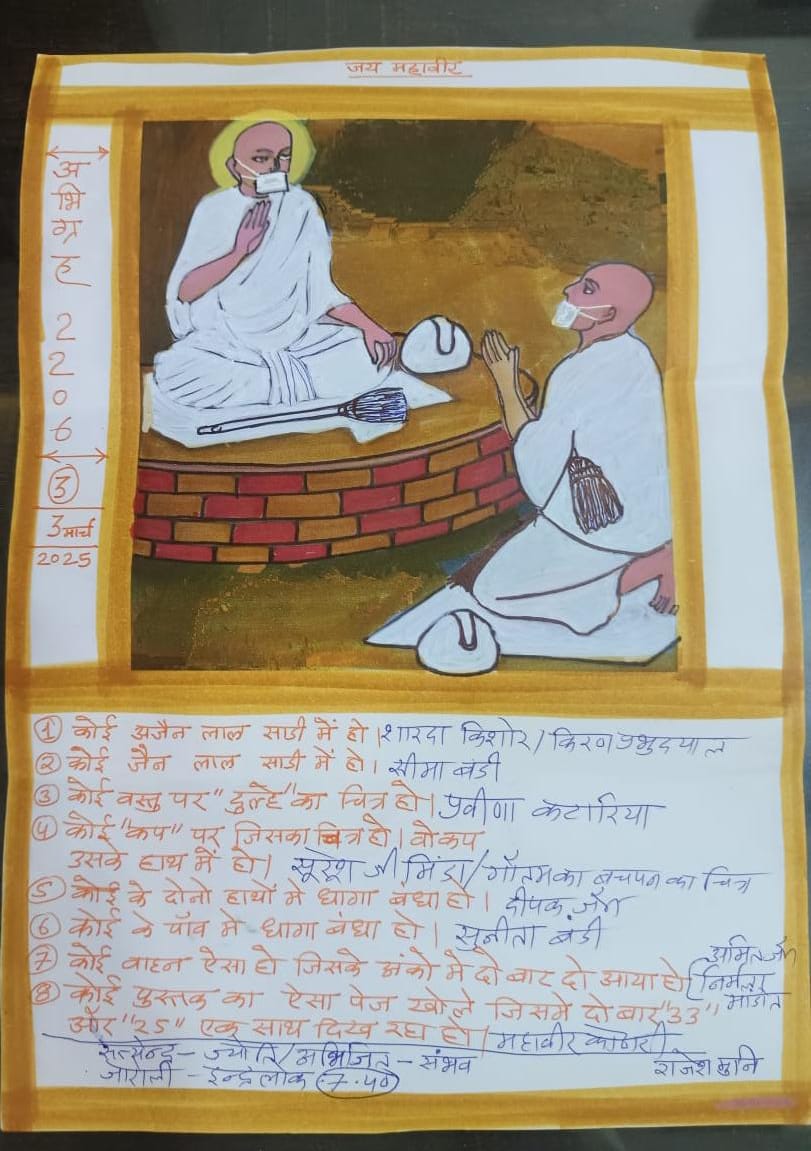 जय महावीर
अभिग्रह 2206
3
3 मार्च
2025
① कोई अजैन लाल साडी में हो। शारदा किशोर / किरण प्रभुदयाल
② कोई जैन लाल साडी में हो। सीमा बंडी
③ कोई वस्तु पर "दुल्हे" का चित्र हो। प्रवीणा कटारिया
④ कोई "कप" पर जिसका चित्र हो। वो कप
उसके हाथ में हो। सुरेश जी मिंडा / गौतम का बचपन का चित्र
⑤ कोई के दोनो हाथों में धागा बंधा हो। दीपक जैन
⑥ कोई के पाँव मे धागा बंधा हो। सुनीता बंडी
⑦ कोई वाहन ऐसा हो जिसके अंको मे दो बार दो आया हो। अमित जैन
⑧ कोई पुस्तक का ऐसा पेज खोले जिसमे दो बार "33"
और "25" एक साथ दिख रहा हो। महावीर कोठारी
ज्योति / अभिजित - संभव
जारोली - इन्द्रलोक 7.40
राजेश मुनि